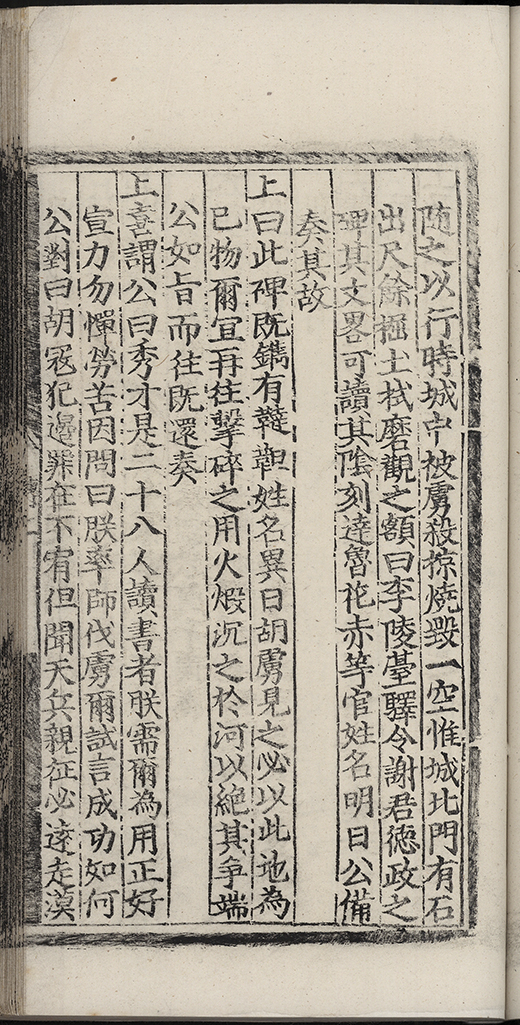 随之以行時城中被虜殺掠燒毀一空惟城北門有石
出尺餘掘土拭磨觀之額曰李陵臺驛令謝君徳政之
碑其文畧可讀其陰刻逹魯花赤等官姓名明日公備
奏其故
上曰此碑既鐫有韃靼姓名異日胡虜見之必以此地為
已物爾宜再往擊碎之用火煅沉之於河以絶其争端
公如旨而往既還奏
上喜謂公曰秀才是二十八人讀書者朕需爾為用正好
宣力勿憚勞苦因問曰朕率師伐虜爾試言成功如何
公對曰胡寇犯邉罪在不宥但聞天兵親征必逺走漠